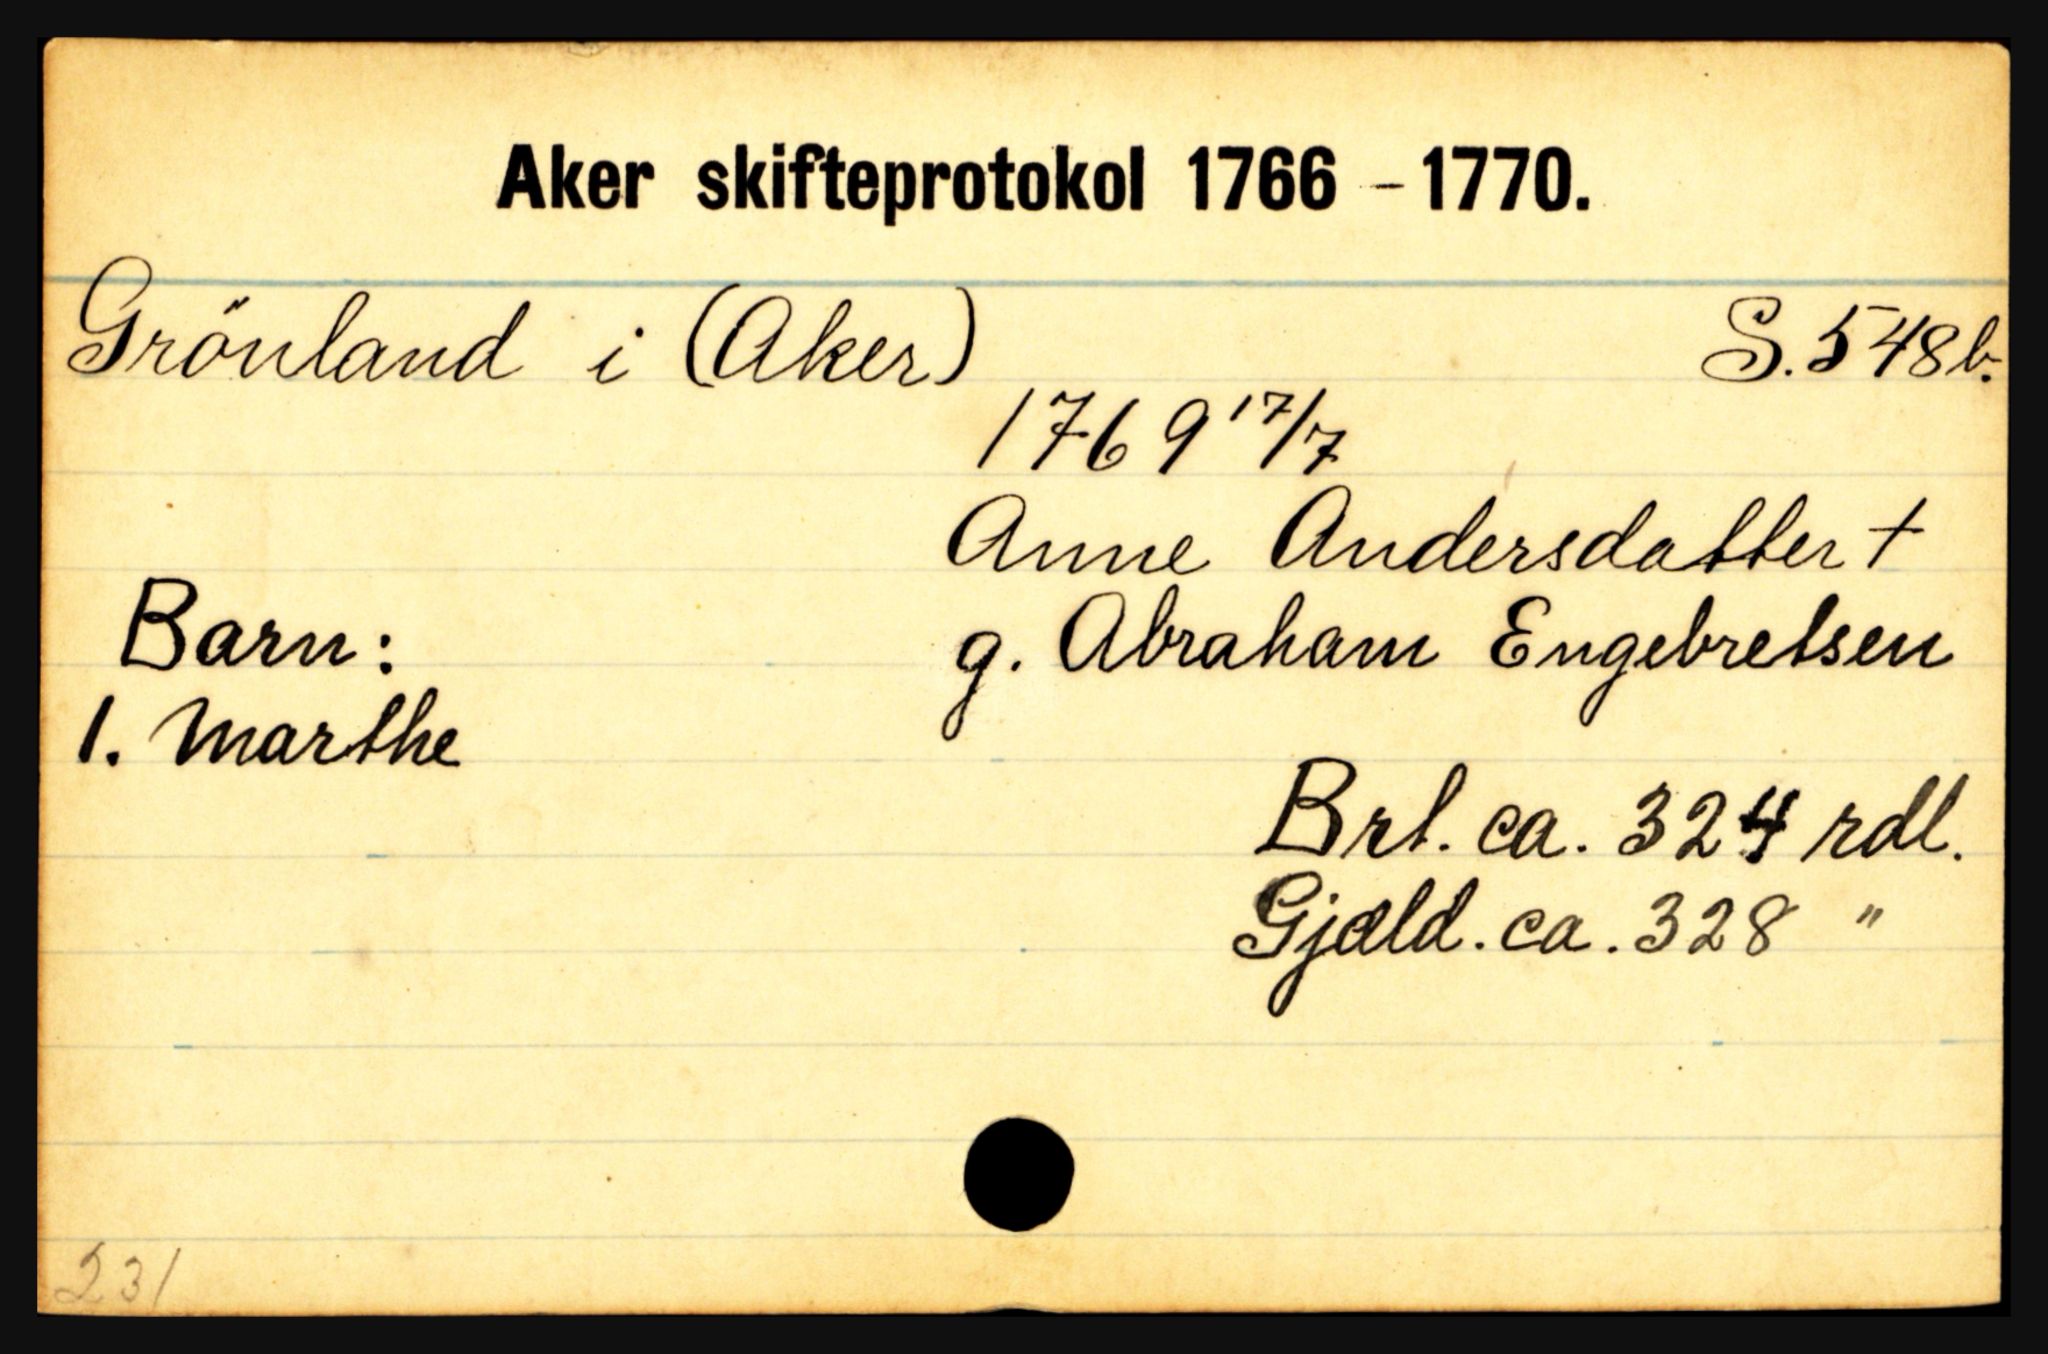 Aker skifteprotokol 1766 - 1770.
Grönland i (Aker) S. 548b.
1769 17/7
Anne Andersdatter †
Barn: g. Abraham Engebretsen
1. Marthe
Brt. ca. 324 rdl.
Gjæld. ca. 328 "
231